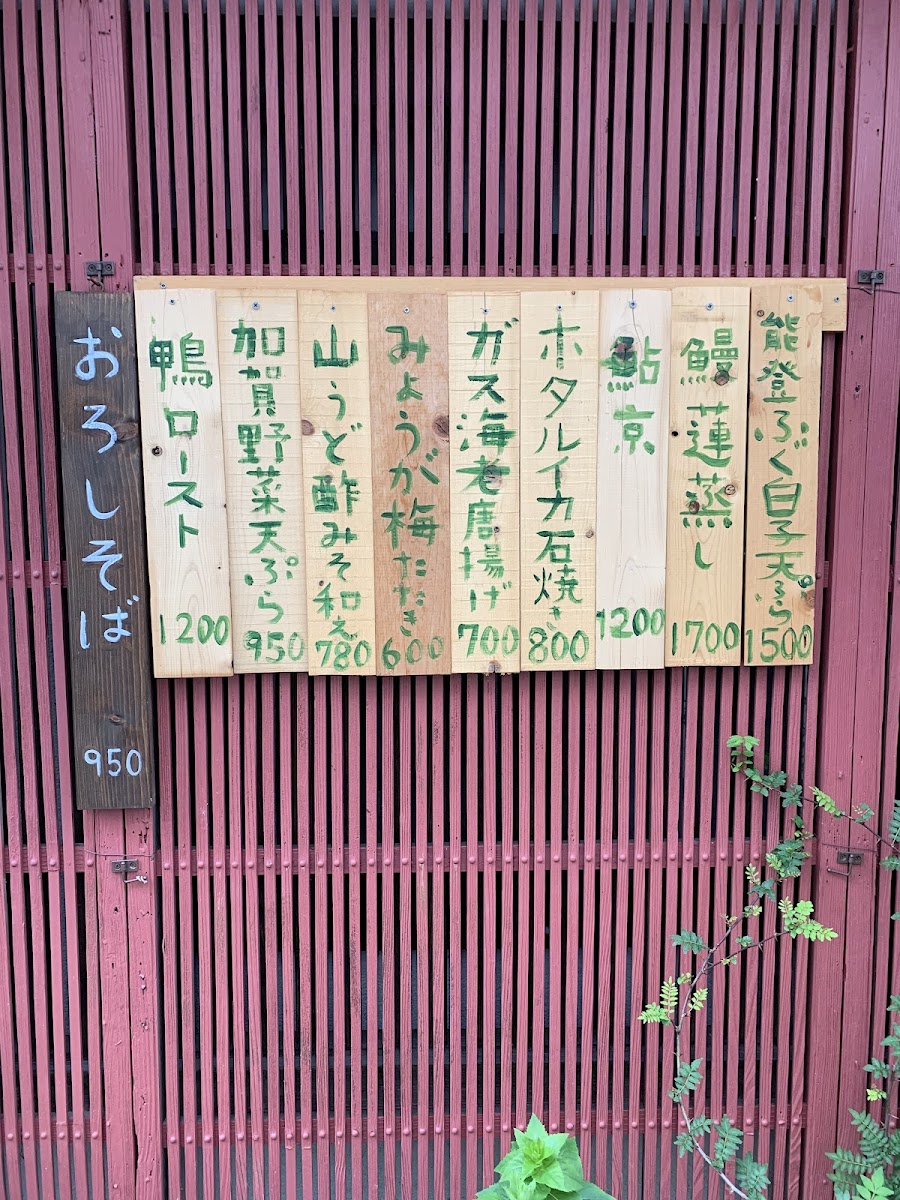 能登ふぐ白子天ぷら 1500
鰻蓮蒸し 1700
鮎京 1200
ホタルイカ石焼き 800
ガス海老唐揚げ 700
みょうが梅たたき 600
山うど酢みそ和え 780
加賀野菜天ぷら 950
鴨ロースト 1200
おろしそば 950